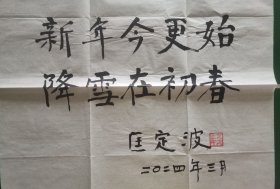 新年今更始
降雪在初春
匡定波
二〇二四年三月